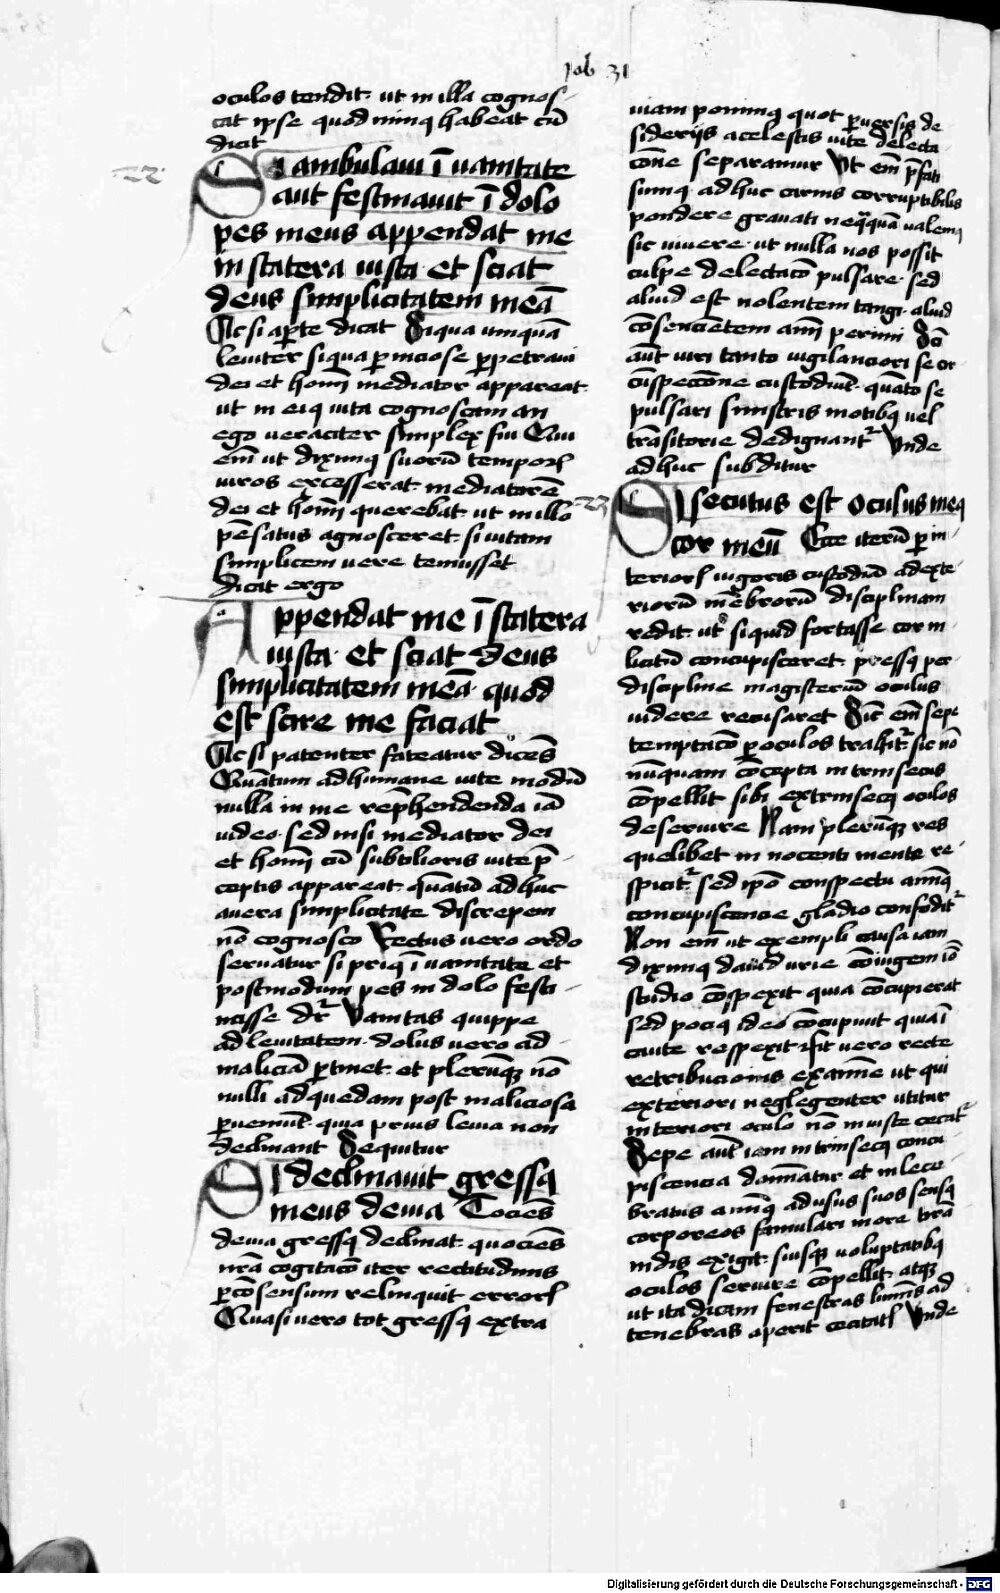 Job 31
oculos tendit. ut in illa cognos-
cat ipse quod minꝯ habeat cū
dicit
22.
Si ambulaui ī uanitate
aut festinauit ī dolo
pes meus appendat me
in statera iusta et sciat
deus simplicitatem meā
Ac si aꝑte dicat Siqua umquā
leuiter siqua ꝑniciose ꝑpetraui
dei et homī mediator appareat.
ut in eiꝯ uita cognoscam an
ego ueraciter simplex fui Qui
em̄ ut diximꝯ suorū temporꝝ
uiros excesserat. mediatorē
dei et homī querebat ut in illo
pēsatus agnosceret. si uitam
simplicem uere tenuisset
dicit ergo
Appendat me ī statera
iusta et sciat deus
simplicitatem meā. quod
est scire me faciat
Ac si patenter fateatur dicēs
Quātum ad humane uite modū
nulla in me rep̄hendenda iā
uideo. sed nisi mediator dei
et homī cū subtilioris uite p̄-
ceptis appareat. quātū adhuc
a uera simplicitate discrepem
nō cognosco Rectus uero ordo
seruatur si priꝯ ī uanitate et
postmodum pes in dolo festi-
nasse dr̄ Vanitas quippe
ad leuitatem. dolus uero ad
maliciā ꝑtinet. et plerūqꝫ nō
nulli ad quedam post maliciosa
ꝑueniūt. quia prius leuia non
declinant Sequitur
Si declinauit gressꝯ
meus deuia Tociēs
deuia gressꝯ declinat. quociēs
nrā cogitacō iter rectitudinis
ꝑ cōsensum relinquit errorꝭ
Quasi uero tot gressꝯ extra
uiam ponimꝯ quot ꝑuersis de
siderijs a celestis uite delecta-
cōne separamur Vt em̄ p̄fati
sumꝯ adhuc carnis corruptibilis
pondere grauati neq̄quā ualemꝯ
sic uiuere. ut nulla nos possit
culpe delectacō pulsare. sed
aliud est nolentem tangi. aliud
cōsencientem aīm perimi Sci
aut uiri tanto uigilanciori se cir-
cūspeccōne custodiūt. quāto se
pulsari sinistris motibꝯ uel
trāsitorie dedignantᷣ Vnde
adhuc subditur
23
Si secutus est oculus meꝯ
cor meū Ecce iterū ꝑ in-
teriorꝭ uigoris custodiā ad exte-
riorū mēbrorū disciplinam
redit. ut si quid fortasse cor in-
licitū concupisceret. pressꝯ per
discipline magisteriū oculus
uidere recusaret Sic em̄ sepe
temptacō ꝑ oculos trahitᷣ sic nō
nūquam cōcepta intrinsecus
cōpellit sibi extrinsecꝯ oculos
deseruire Nam plerūqꝫ res
quelibet innocenti mente re-
spicitᷣ sed ipō conspectu animꝯ
concupiscencie gladio confoditᷣ
Non em̄ ut exempli causa iam
diximꝯ dauid urie cōiugem iō
studio cōspexit quia cōcupierat
sed pociꝯ ideo cōcupiuit quia ī
caute respexit Fit uero recte
retribucionis examīne ut qui
exteriori neglegenter utitur
interiori oculo nō iniuste cecatᷣ
Sepe aut iam intrinsecꝯ concu-
piscencia domīatur et inlece-
bratus animꝯ ad usus suos sensꝯ
corporeos famulari more tirā-
nidis exigit. suisqꝫ uoluptatibꝯ
oculos seruire cōpellit. atqꝫ
ut ita dicam fenestras luminis ad
tenebras aperit cecitatꝭ Vnde
Digitalisierung gefördert durch die Deutsche Forschungsgemeinschaft - DFG